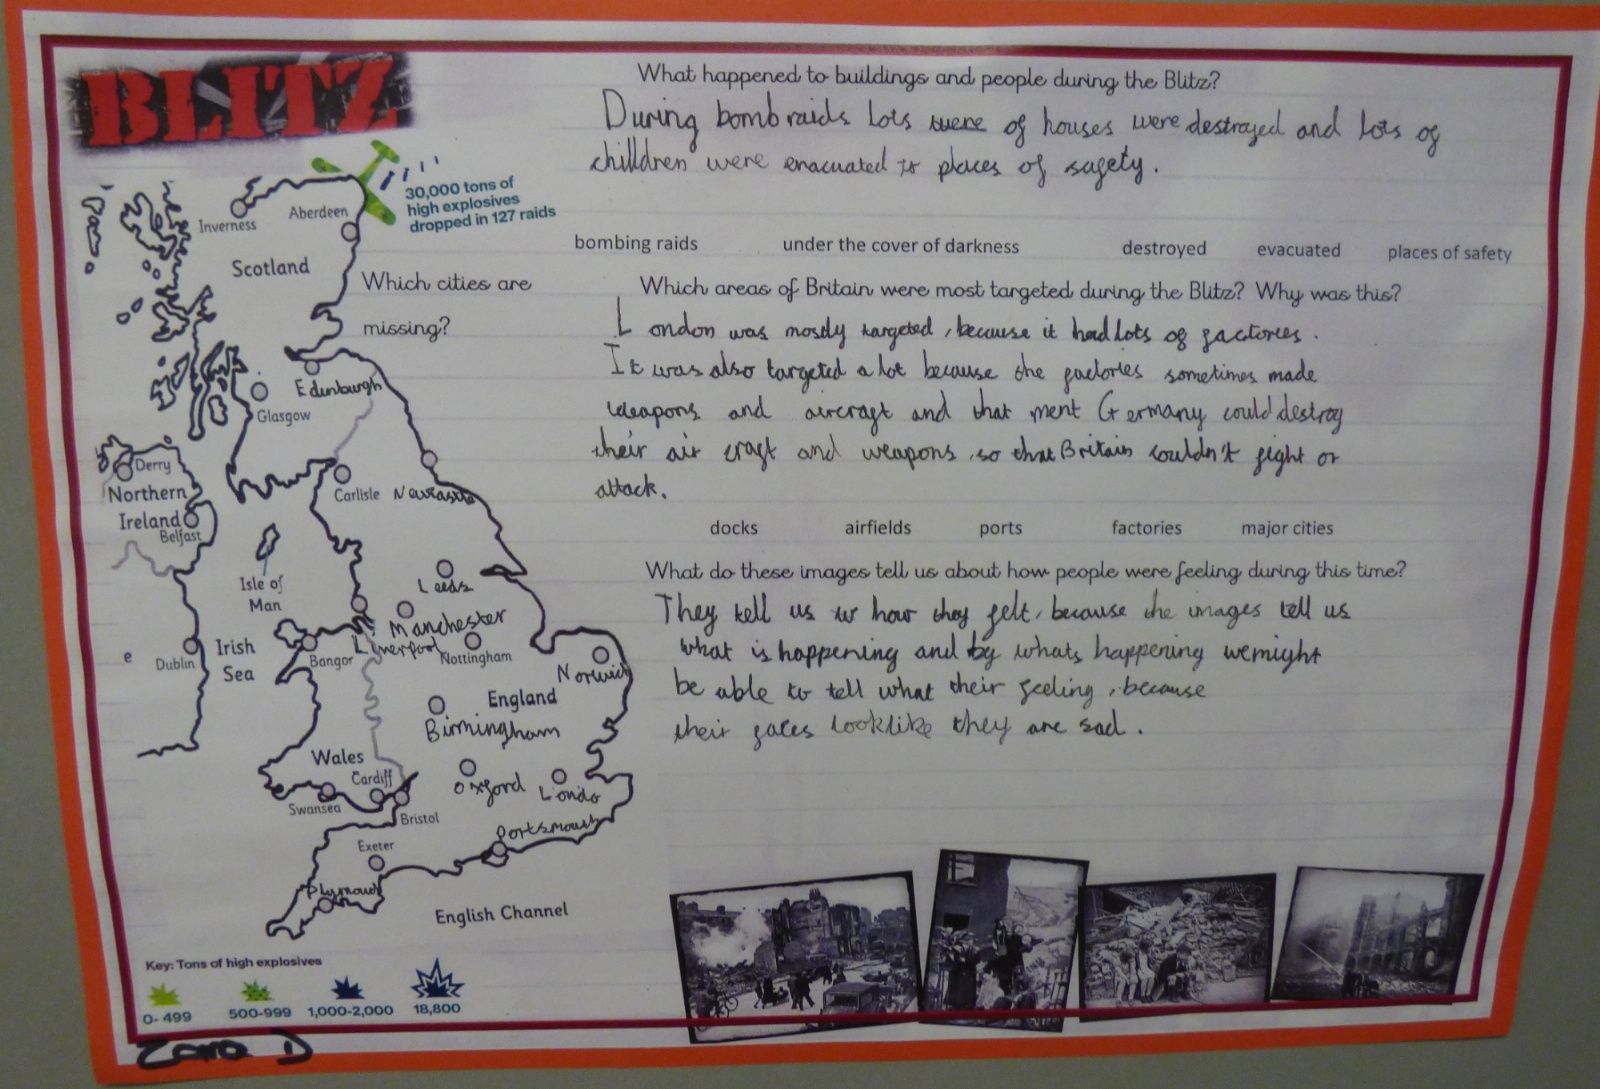 BLITZ
What happened to buildings and people during the Blitz?
During bomb raids lots were of houses were destrayed and lots of
chilldren were enacuated to places of safety.
30,000 tons of
high explosives
dropped in 127 raids
bombing raids under the cover of darkness destroyed evacuated places of safety
Which cities are
missing?
Which areas of Britain were most targeted during the Blitz? Why was this?
London was mostly targeted, because it had lots of factories.
It was also targeted a lot because the factories sometimes made
weapons and aircraft and that ment Germany could destroy
their air craft and weapons, so that Britain couldn't fight or
attack.
docks airfields ports factories major cities
What do these images tell us about how people were feeling during this time?
They tell us how they felt, because the images tell us
what is happening and by whats happening we might
be able to tell what their feeling, because
their faces look like they are sad.
Inverness
Aberdeen
Scotland
Edunburgh
Glasgow
Derry
Northern
Ireland
Belfast
Carlisle
Newcastle
Isle of
Man
Leeds
Manchester
Liverpool
Nottingham
Irish
Sea
e
Dublin
Bangor
Norwich
England
Birmingham
Wales
Cardiff
Swansea
Oxford
Londo
Bristol
Portsmouth
Exeter
Plymouth
English Channel
Key: Tons of high explosives
0- 499 500-999 1,000-2,000 18,800
Zara D